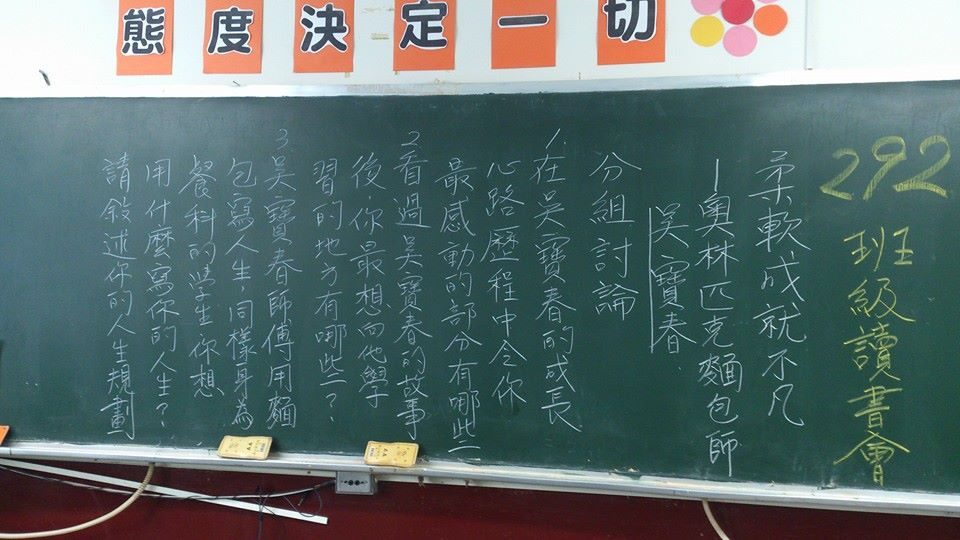 態度決定一切
292班級讀書會
柔軟成就不凡
—奧林匹克麵包師
吳寶春
分組討論
1.在吳寶春的成長
心路歷程中令你
最感動的部分有哪些
2看過吳寶春的故事
後,你最想向他學
習的地方有哪些?
3吳寶春師傅用麵
包寫人生,同樣身為
餐科的學生你想
用什麼寫你的人生?
請敘述你的人生規劃